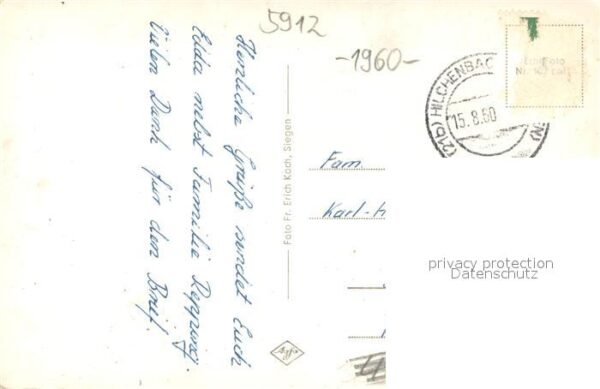 5912
-1960-
Herzliche Grüße sendet Euch
Edda nebst Familie
Vielen Dank für den Brief.
Foto Fr. Erich Koch, Siegen
Agfa
(21b) HILCHENBAC
15.8.60
Foto
Fam
Karl-H
privacy protection
Datenschutz